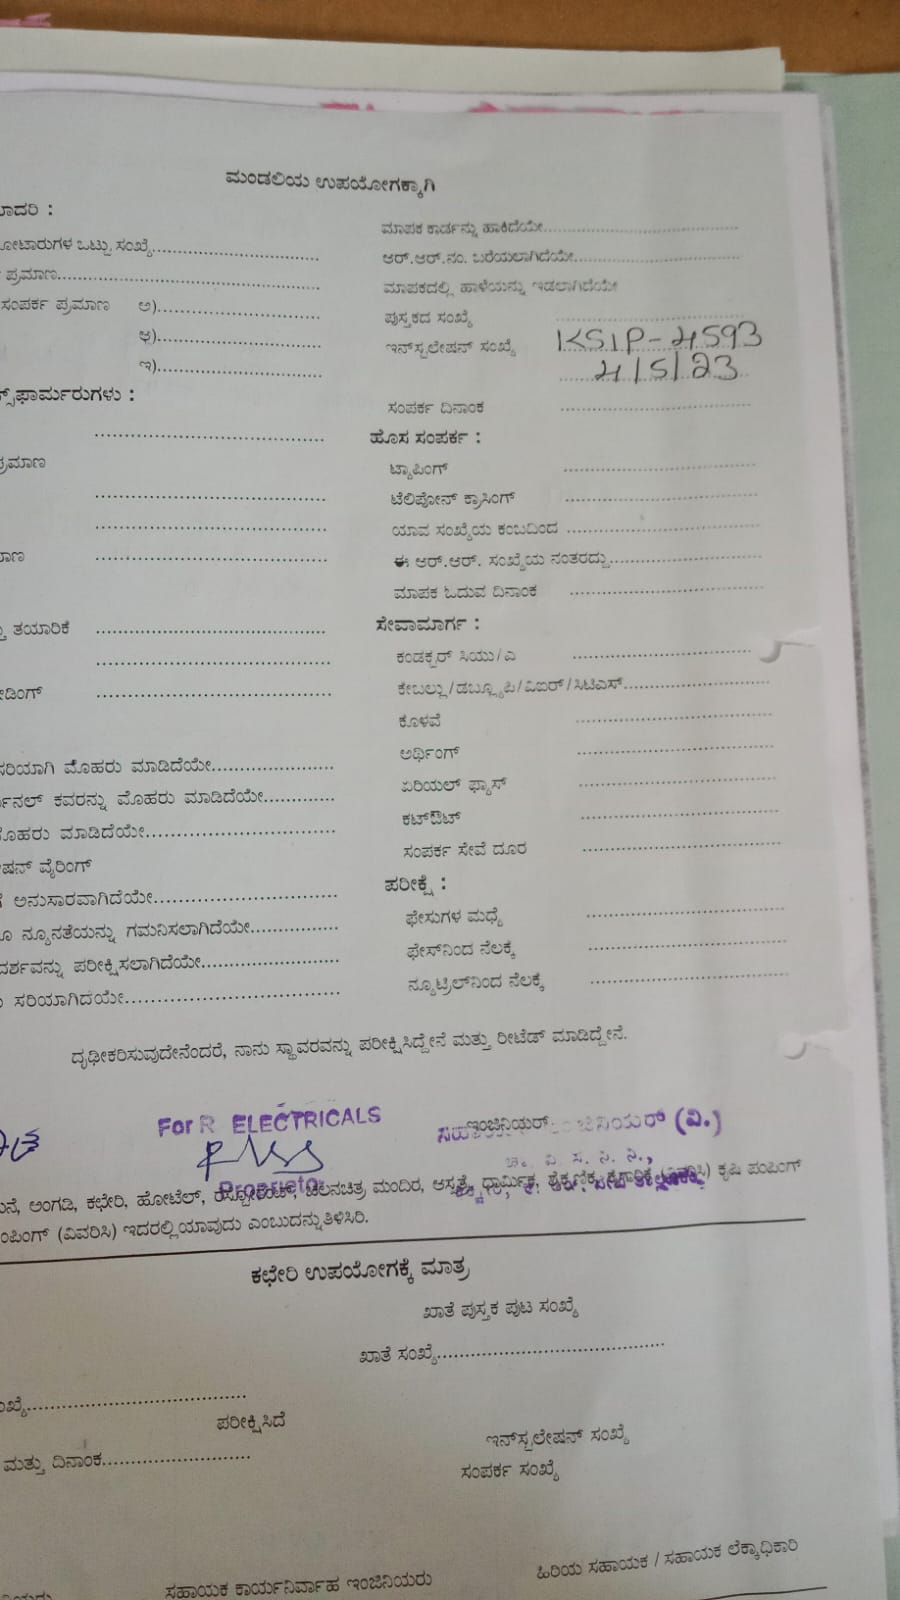 ಮಂಡಲಿಯ ಉಪಯೋಗಕ್ಕಾಗಿ
ಾದರಿ :
ೋಟಾರುಗಳ ಒಟ್ಟು ಸಂಖ್ಯೆ..............................
ಪ್ರಮಾಣ..............................
ಸಂಪರ್ಕ ಪ್ರಮಾಣ ಅ)..............................
ಆ)..............................
ಇ)..............................
ಸ್‌ಫಾರ್ಮರುಗಳು :
ಪ್ರಮಾಣ
ಮಾಣ
ತಯಾರಿಕೆ ..............................
ೀಡಿಂಗ್ ..............................
ಸರಿಯಾಗಿ ಮೊಹರು ಮಾಡಿದೆಯೇ....................
ನಲ್ ಕವರನ್ನು ಮೊಹರು ಮಾಡಿದೆಯೇ............
ೊಹರು ಮಾಡಿದೆಯೇ..............................
ಷನ್ ವೈರಿಂಗ್
ಅನುಸಾರವಾಗಿದೆಯೇ..............................
ನ್ಯೂನತೆಯನ್ನು ಗಮನಿಸಲಾಗಿದೆಯೇ...............
ದರ್ಶವನ್ನು ಪರೀಕ್ಷಿಸಲಾಗಿದೆಯೇ....................
ಸರಿಯಾಗಿದೆಯೇ..............................
ಮಾಪಕ ಕಾರ್ಡನ್ನು ಹಾಕಿದೆಯೇ..............................
ಆರ್.ಆರ್.ನಂ. ಬರೆಯಲಾಗಿದೆಯೇ..............................
ಮಾಪಕದಲ್ಲಿ ಹಾಳೆಯನ್ನು ಇಡಲಾಗಿದೆಯೇ
ಪುಸ್ತಕದ ಸಂಖ್ಯೆ ..............................
ಇನ್‌ಸ್ಟಲೇಷನ್ ಸಂಖ್ಯೆ KSIP-4593
4/5/23
ಸಂಪರ್ಕ ದಿನಾಂಕ ..............................
ಹೊಸ ಸಂಪರ್ಕ :
ಟ್ಯಾಪಿಂಗ್ ..............................
ಟೆಲಿಫೋನ್ ಕ್ರಾಸಿಂಗ್ ..............................
ಯಾವ ಸಂಖ್ಯೆಯ ಕಂಬದಿಂದ ..............................
ಈ ಆರ್.ಆರ್. ಸಂಖ್ಯೆಯ ನಂತರದ್ದು..............................
ಮಾಪಕ ಓದುವ ದಿನಾಂಕ ..............................
ಸೇವಾಮಾರ್ಗ :
ಕಂಡಕ್ಟರ್ ಸಿಯು/ಎ ..............................
ಕೇಬಲ್ಲು/ಡಬ್ಲ್ಯೂಪಿ/ವಿಐರ್/ಸಿಟಿಎಸ್..............................
ಕೊಳವೆ ..............................
ಅರ್ಥಿಂಗ್ ..............................
ಏರಿಯಲ್ ಫ್ಯೂಸ್ ..............................
ಕಟ್‌ಔಟ್ ..............................
ಸಂಪರ್ಕ ಸೇವೆ ದೂರ ..............................
ಪರೀಕ್ಷೆ :
ಫೇಸುಗಳ ಮಧ್ಯೆ ..............................
ಫೇಸ್‌ನಿಂದ ನೆಲಕ್ಕೆ ..............................
ನ್ಯೂಟ್ರಲ್‌ನಿಂದ ನೆಲಕ್ಕೆ ..............................
ದೃಢೀಕರಿಸುವುದೇನೆಂದರೆ, ನಾನು ಸ್ಥಾವರವನ್ನು ಪರೀಕ್ಷಿಸಿದ್ದೇನೆ ಮತ್ತು ರೀಟೆಡ್ ಮಾಡಿದ್ದೇನೆ.
For R ELECTRICALS
Proprietor
ಇಂಜಿನಿಯರ್
ಇಂಜಿನಿಯರ್ (ವಿ.)
ಅಂಗಡಿ, ಕಛೇರಿ, ಹೋಟೆಲ್, ಚಲನಚಿತ್ರ ಮಂದಿರ, ಆಸ್ಪತ್ರೆ, ಧಾರ್ಮಿಕ, ಶೈಕ್ಷಣಿಕ, ಕೈಗಾರಿಕೆ (ವಿವರಿಸಿ) ಕೃಷಿ ಪಂಪಿಂಗ್
ಂಪಿಂಗ್ (ವಿವರಿಸಿ) ಇದರಲ್ಲಿ ಯಾವುದು ಎಂಬುದನ್ನು ತಿಳಿಸಿರಿ.
ಕಛೇರಿ ಉಪಯೋಗಕ್ಕೆ ಮಾತ್ರ
ಖಾತೆ ಪುಸ್ತಕ ಪುಟ ಸಂಖ್ಯೆ
ಖಾತೆ ಸಂಖ್ಯೆ..............................
ಂಖ್ಯೆ..............................
ಪರೀಕ್ಷಿಸಿದೆ
ಇನ್‌ಸ್ಟಲೇಷನ್ ಸಂಖ್ಯೆ
ಮತ್ತು ದಿನಾಂಕ..............................
ಸಂಪರ್ಕ ಸಂಖ್ಯೆ
ಸಹಾಯಕ ಕಾರ್ಯನಿರ್ವಾಹ ಇಂಜಿನಿಯರು
ಹಿರಿಯ ಸಹಾಯಕ / ಸಹಾಯಕ ಲೆಕ್ಕಾಧಿಕಾರಿ